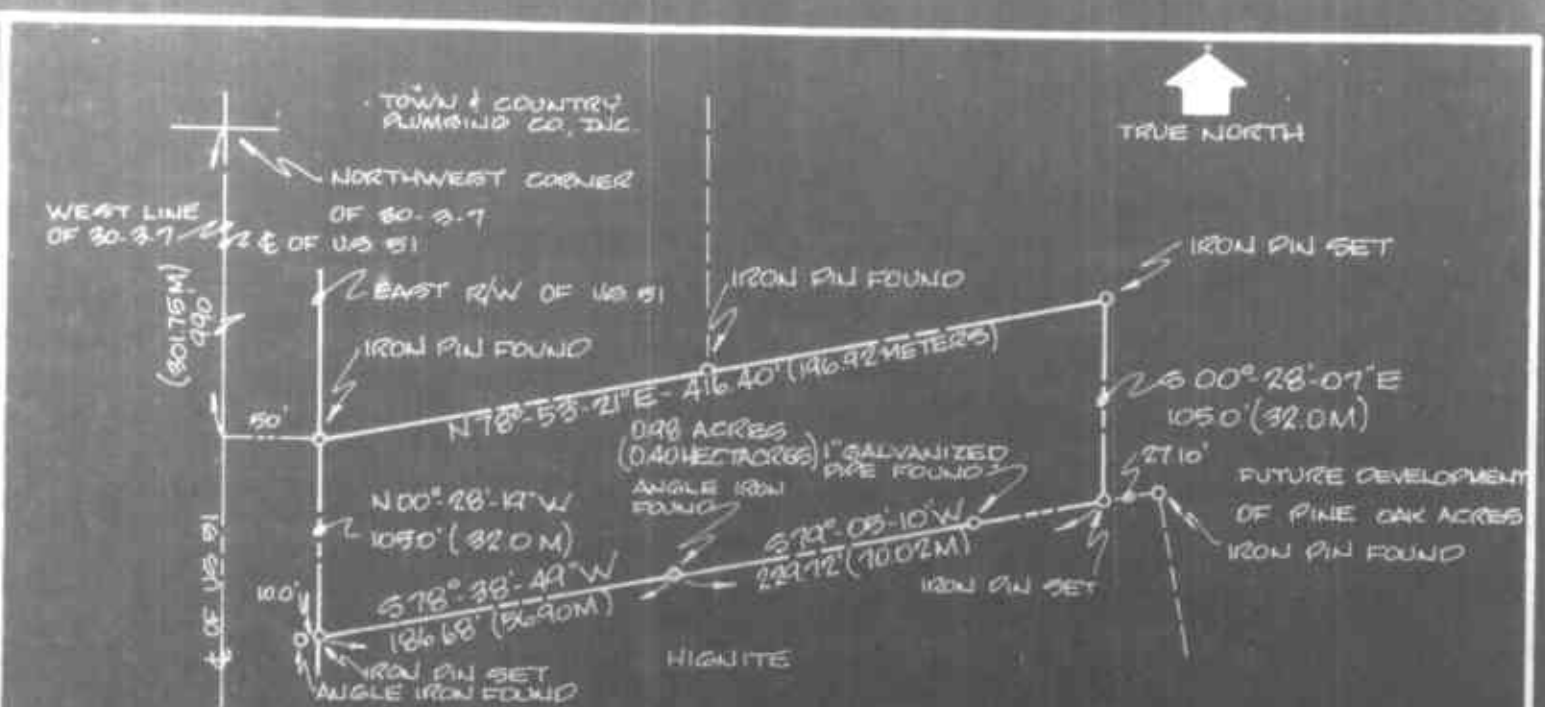 TOWN & COUNTRY
PLUMBING CO, INC.
TRUE NORTH
NORTHWEST CORNER
OF 30-3-7
WEST LINE
OF 30-3-7
℄ OF U.S 51
EAST R/W OF U.S 51
(301.75M)
990
IRON PIN FOUND
IRON PIN FOUND
IRON PIN SET
N 78°-53'-21"E - 416.40' (196.92 METERS)
S 00°-28'-07"E
105.0' (32.0M)
50'
0.98 ACRES
(0.40 HECTACRES)
1" GALVANIZED
PIPE FOUND
ANGLE IRON
FOUND
27.10'
FUTURE DEVELOPMENT
OF PINE OAK ACRES
IRON PIN FOUND
N 00°-28'-19"W
105.0' (32.0 M)
S 79°-05'-10"W
229.72' (70.02M)
IRON PIN SET
℄ OF US 51
10.0'
S 78°-38'-49"W
186.68' (56.90M)
HIGNITE
IRON PIN SET
ANGLE IRON FOUND